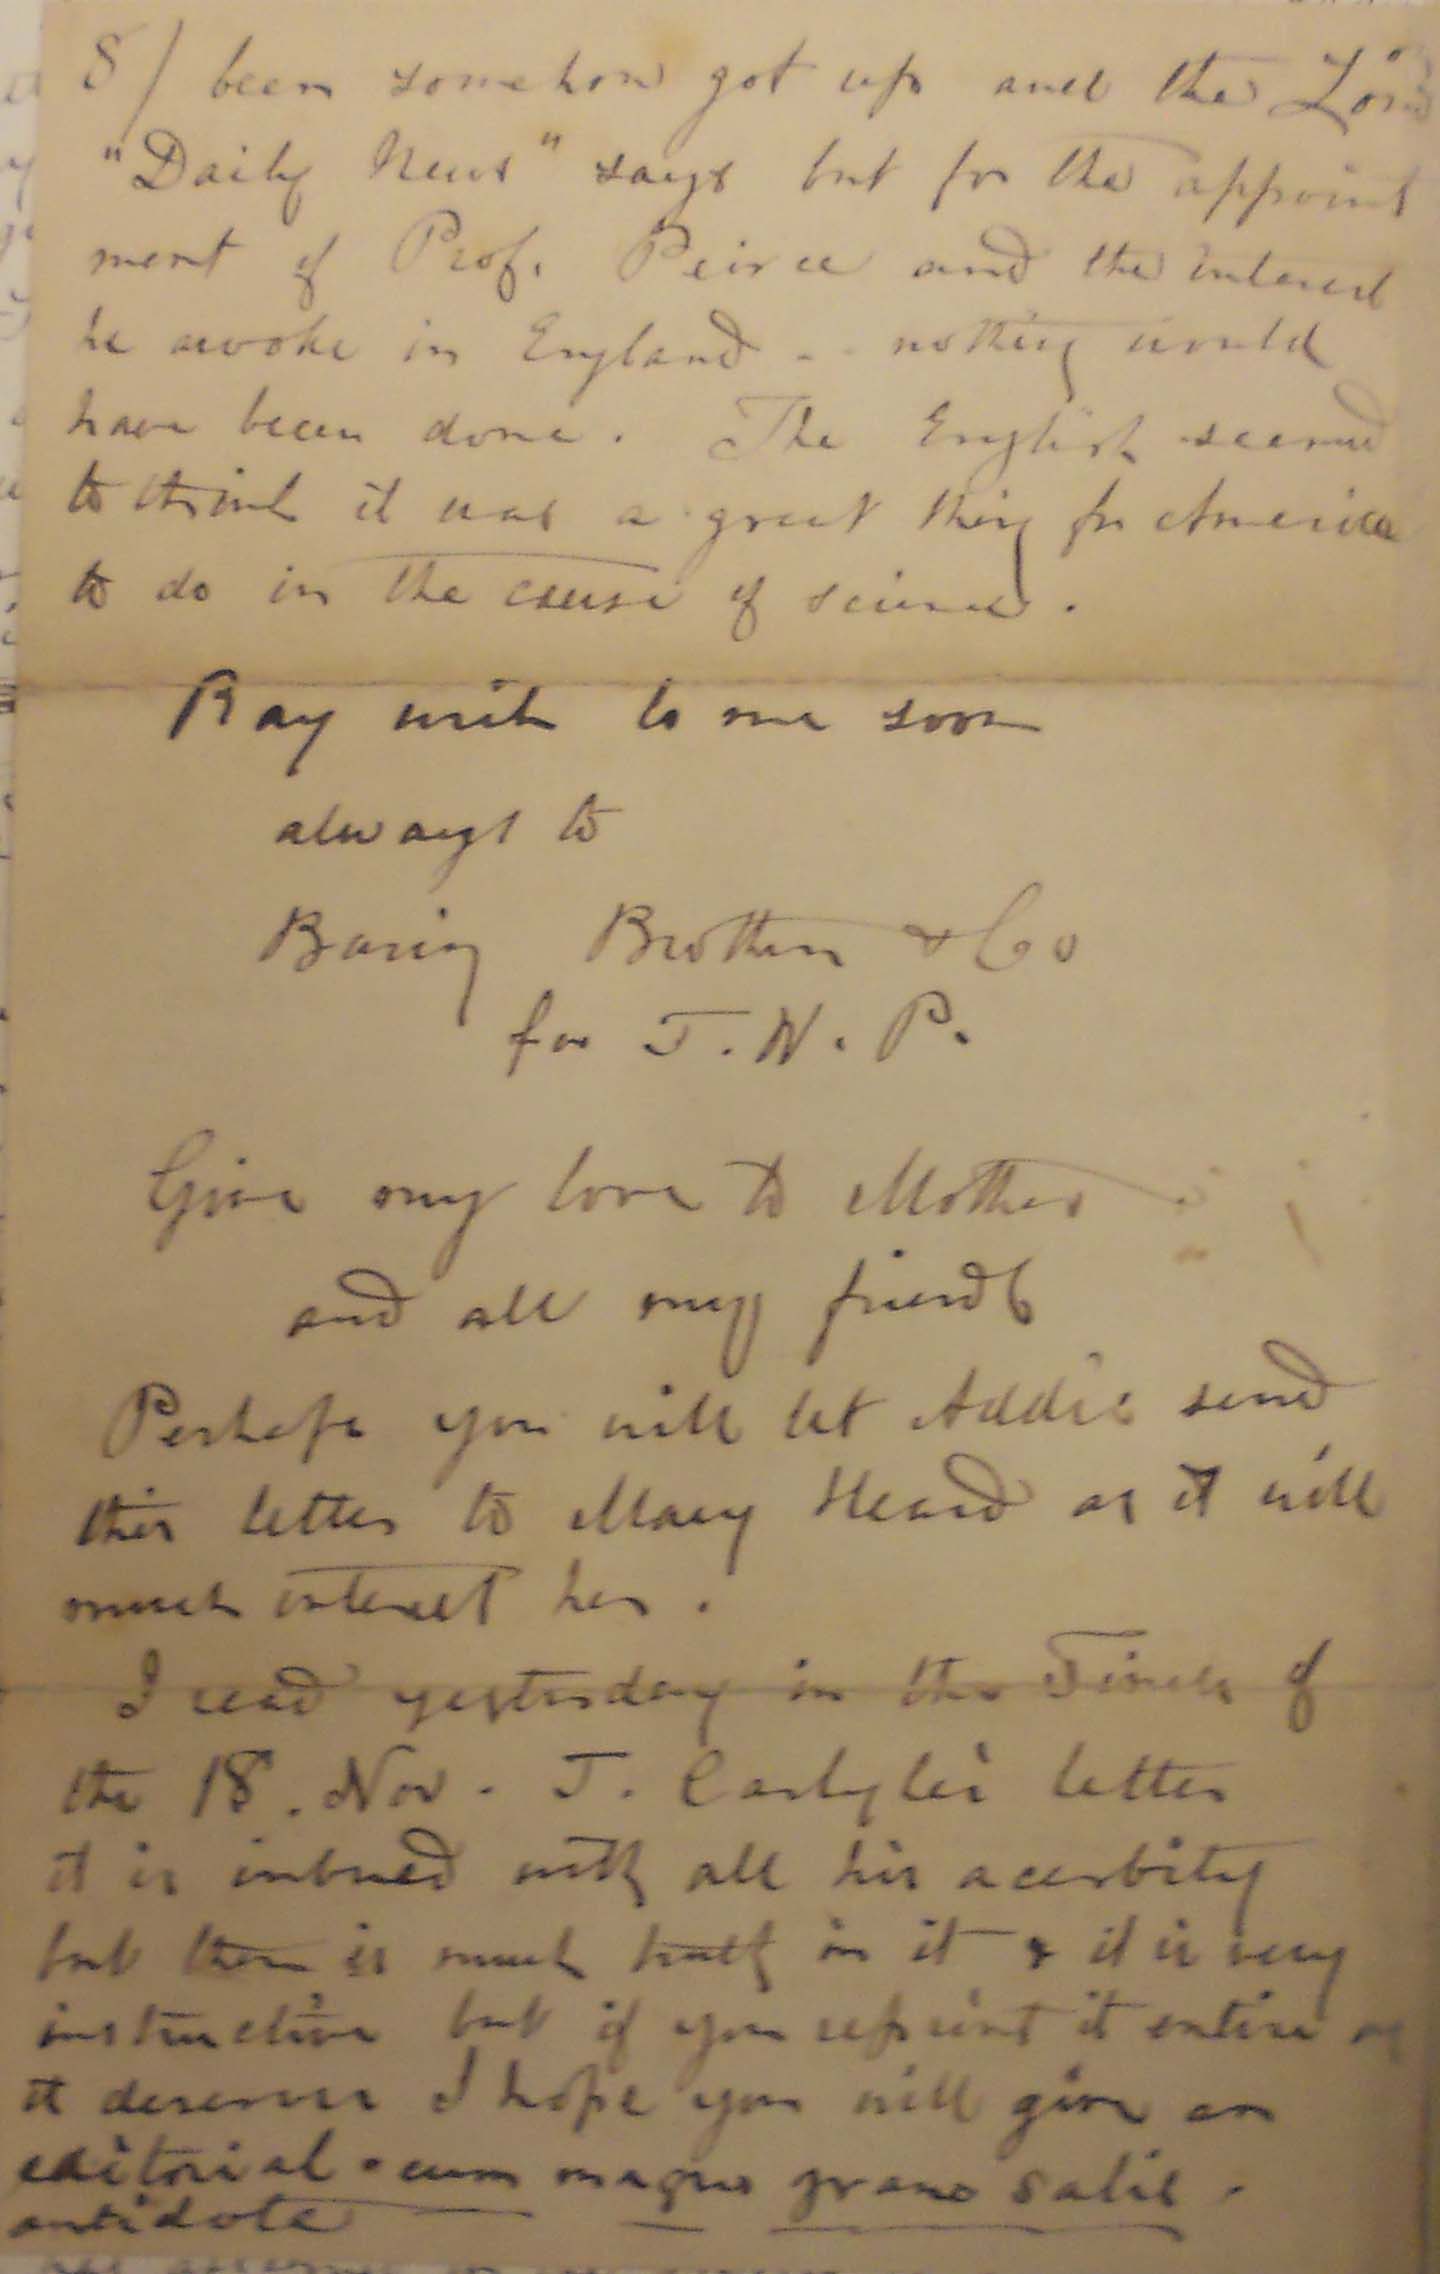 8/ been somehow got up and the Lon
"Daily News" says but for the appoint
ment of Prof. Peirce and the interest
he awoke in England - - nothing would
have been done. The English seemed
to think it was a great thing for America
to do in the cause of science.
Pray write to me soon
always to
Baring Brothers & Co
for J. W. P.
Give my love to Mother
and all my friends
Perhaps you will let Addie send
this letter to Mary Heard as it will
much interest her.
I read yesterday in the Times of
the 18. Nov. T. Carlyle's letter
it is imbued with all his acerbity
but there is much truth in it & it is very
instructive but if you reprint it entire as
it deserves I hope you will give an
editorial cum magno grano salis.
antidote